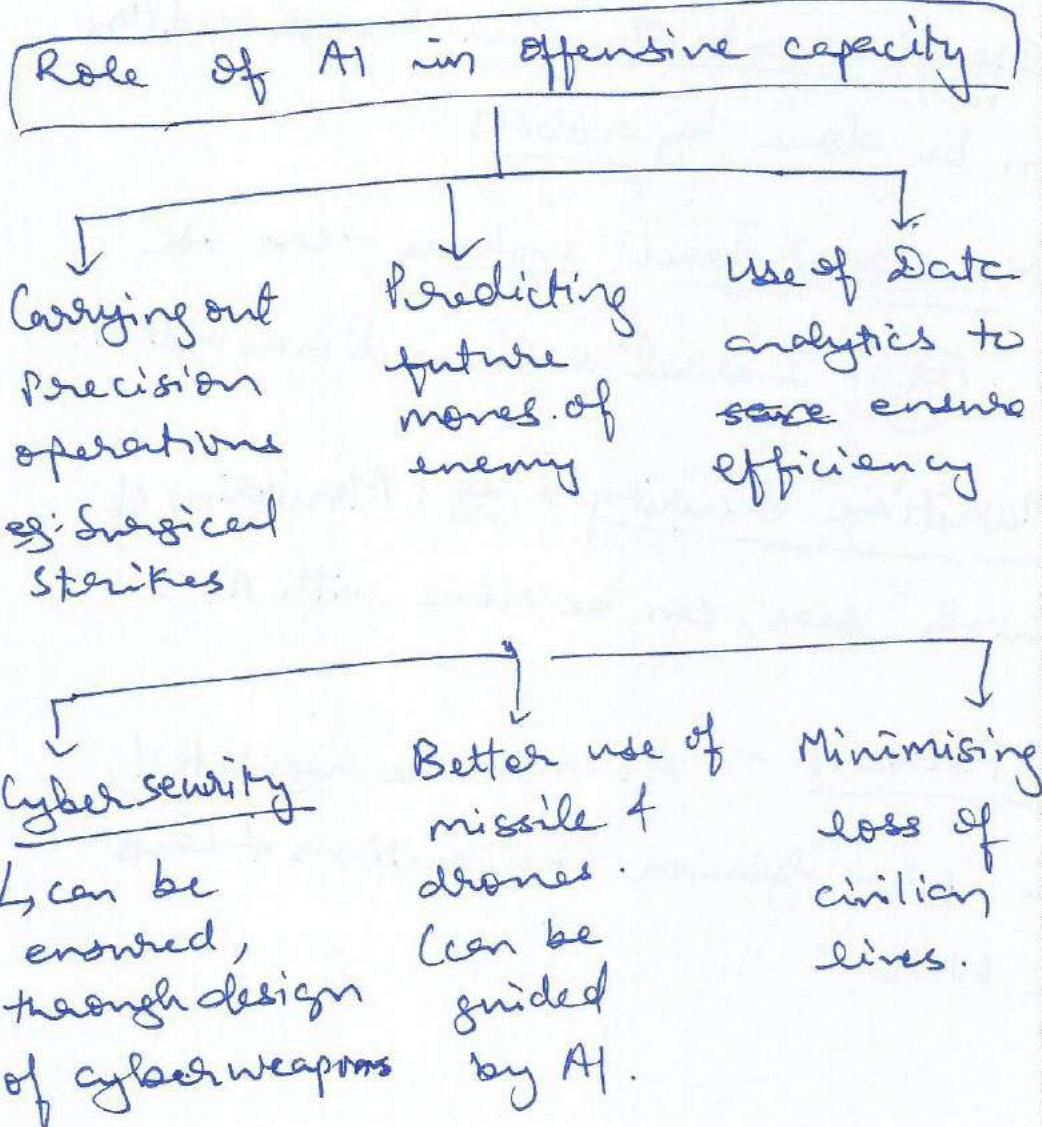 Role of AI in offensive capacity
Carrying out
Precision
operations
eg: Surgical
Strikes
Predicting
future
moves of
enemy
use of Data
analytics to
ensure
efficiency
Cyber security
↳ can be
ensured,
through design
of cyberweapons
Better use of
missile &
drones.
(can be
guided
by AI.
Minimising
loss of
civilian
lives.